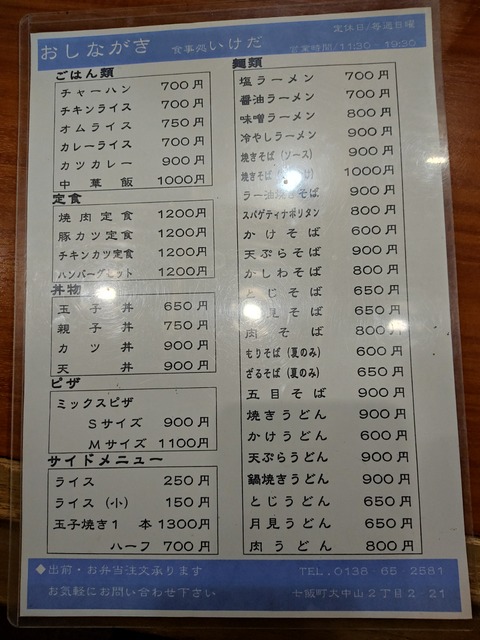 おしながき 食事処いけだ
定休日/毎週日曜
営業時間/11:30~19:30
ごはん類
チャーハン 700円
チキンライス 700円
オムライス 750円
カレーライス 700円
カツカレー 900円
中華飯 1000円
定食
焼肉定食 1200円
豚カツ定食 1200円
チキンカツ定食 1200円
ハンバーグセット 1200円
丼物
玉子丼 650円
親子丼 750円
カツ丼 900円
天丼 900円
ピザ
ミックスピザ
Sサイズ 900円
Mサイズ 1100円
サイドメニュー
ライス 250円
ライス(小) 150円
玉子焼き1本 1300円
ハーフ 700円
麺類
塩ラーメン 700円
醤油ラーメン 700円
味噌ラーメン 800円
冷やしラーメン 900円
焼きそば(ソース) 900円
焼きそば 1000円
ラー油焼きそば 900円
スパゲティナポリタン 800円
かけそば 600円
天ぷらそば 900円
かしわそば 800円
とじそば 650円
見そば 650円
肉そば 800円
もりそば(夏のみ) 600円
ざるそば(夏のみ) 650円
五目そば 900円
焼きうどん 900円
かけうどん 600円
天ぷらうどん 900円
鍋焼きうどん 900円
とじうどん 650円
月見うどん 650円
肉うどん 800円
◆出前・お弁当注文承ります
お気軽にお問い合わせ下さい
TEL.0138-65-2581
七飯町大中山2丁目2-21